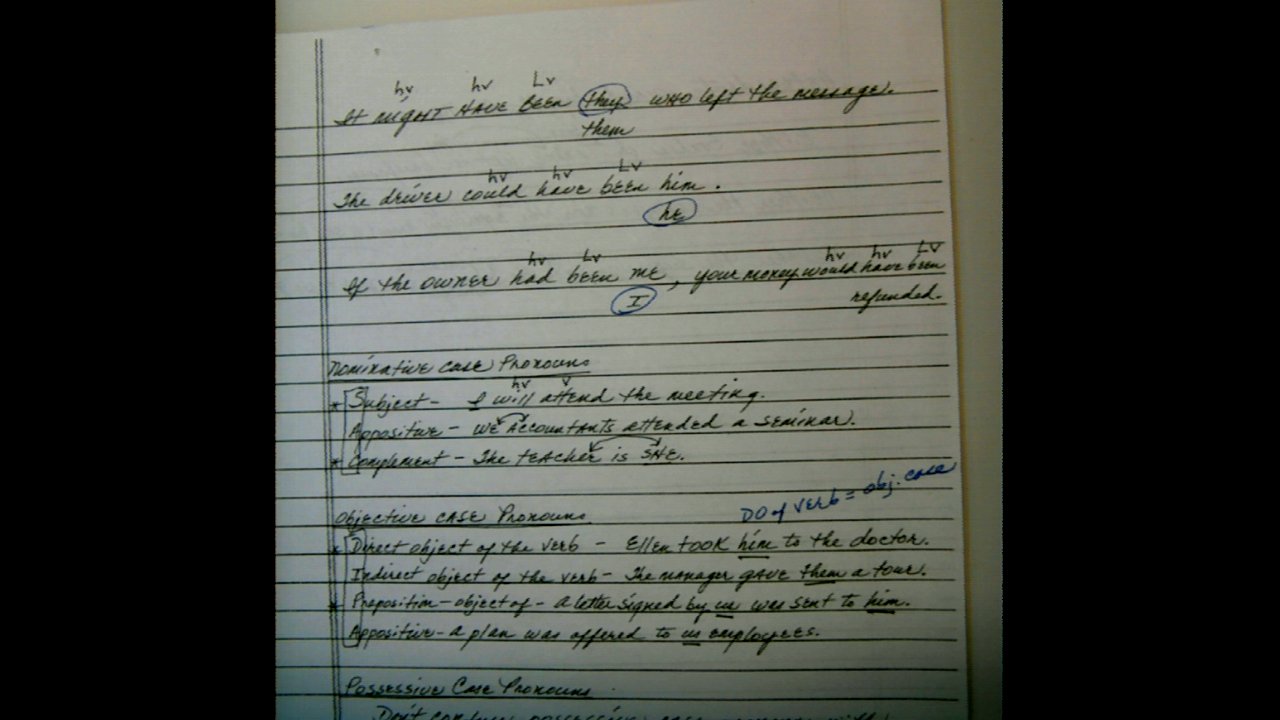 hv hv Lv
It might HAVE BEEN they who left the message.
them
hv hv Lv
The driver could have been him.
he
hv Lv hv hv LV
If the owner had been me, your money would have been
I refunded.
Nominative case Pronouns
hv v
* Subject - I will attend the meeting.
Appositive - WE Accountants attended a seminar.
* Complement - The teacher is SHE.
DO of verb = obj. case
Objective CASE Pronouns
* Direct object of the verb - Ellen took him to the doctor.
Indirect object of the verb - The manager gave them a tour.
* Preposition - object of - a letter signed by us was sent to him.
Appositive - a plan was offered to us employees.
Possessive Case Pronouns
Don't